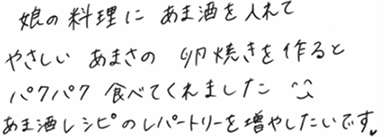 娘の料理に あま酒を入れて
やさしい あまさの 卵焼きを作ると
パクパク 食べてくれました
あま酒レシピのレパートリーを増やしたいです。